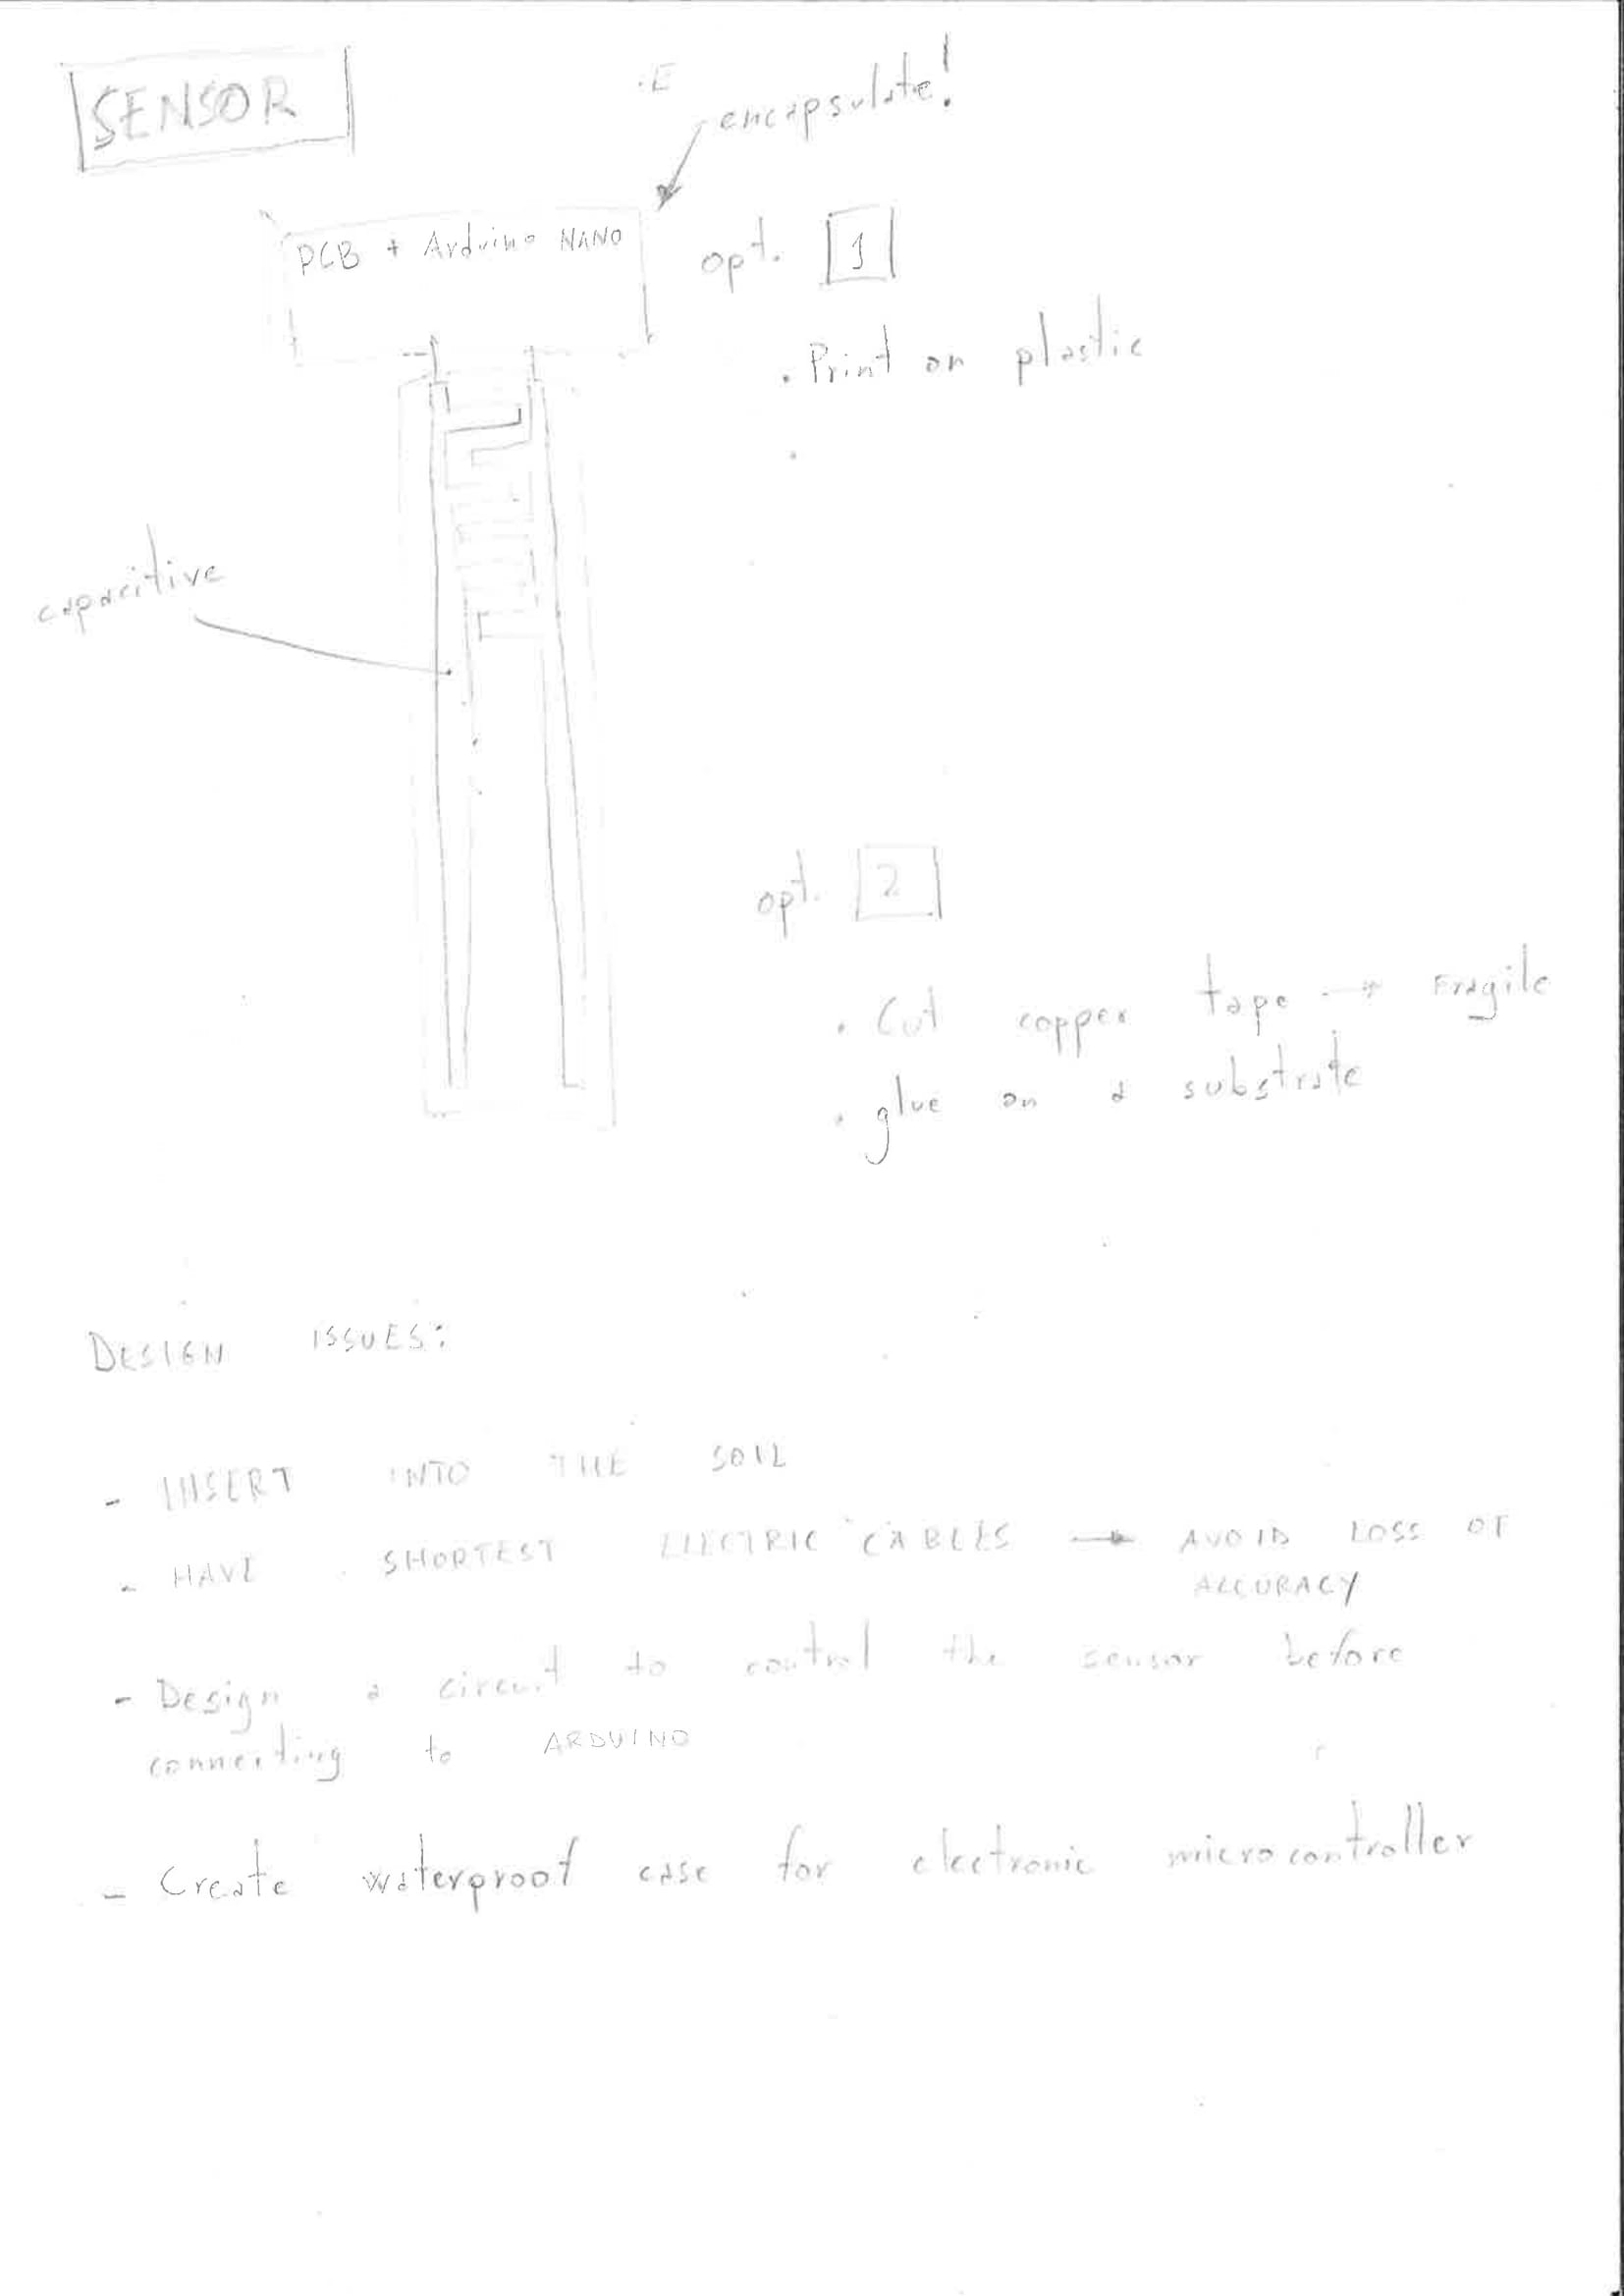 SENSOR
.E
encapsulate!
PCB + Arduino NANO
opt. 1
. Print on plastic
.
capacitive
opt. 2
. Cut copper tape → Fragile
. glue on a substrate
DESIGN ISSUES:
- INSERT INTO THE SOIL
- HAVE SHORTEST ELECTRIC CABLES → AVOID LOSS OF
ACCURACY
- Design a circuit to control the sensor before
connecting to ARDUINO
- Create waterproof case for electronic microcontroller